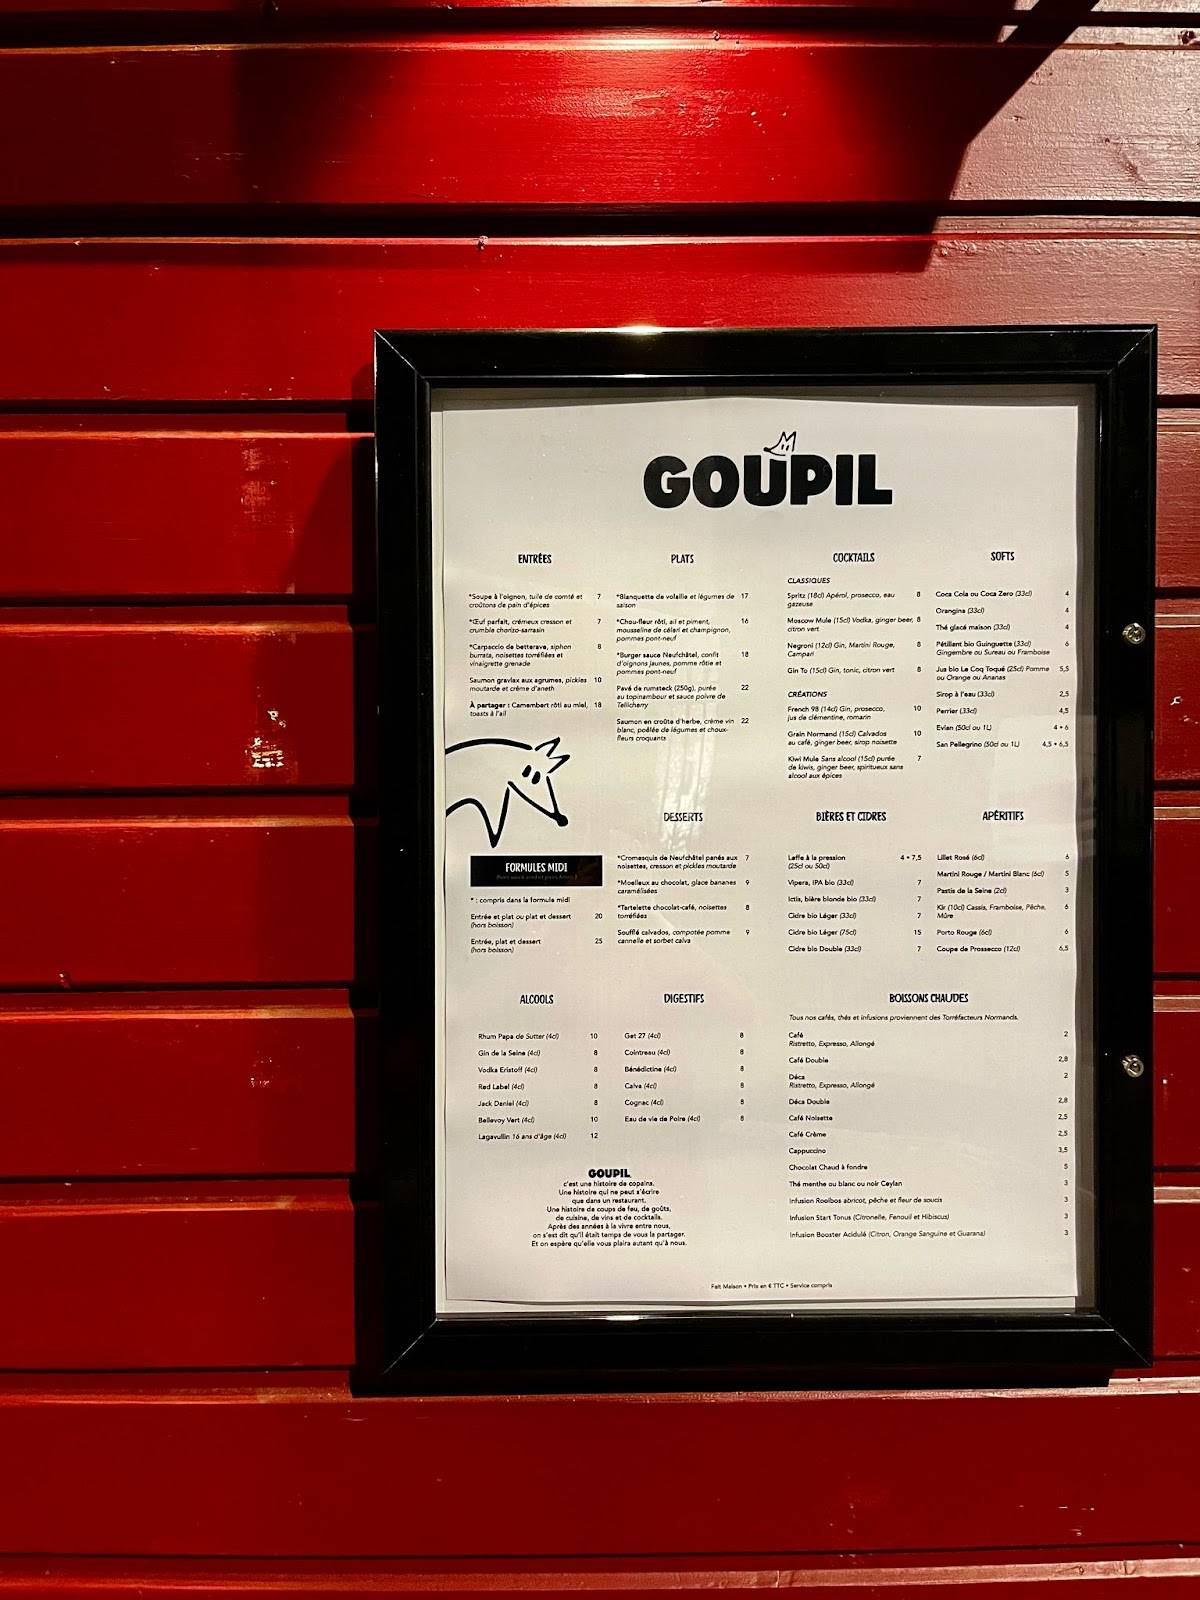 GOUPIL
ENTRÉES
*Soupe à l'oignon, tuile de comté et 7
croûtons de pain d'épices
*Œuf parfait, crémeux cresson et 7
crumble chorizo-sarrasin
*Carpaccio de betterave, siphon 8
burrata, noisettes torréfiées et
vinaigrette grenade
Saumon gravlax aux agrumes, pickles 10
moutarde et crème d'aneth
À partager : Camembert rôti au miel, 18
toasts à l'ail
PLATS
*Blanquette de volaille et légumes de 17
saison
*Chou-fleur rôti, ail et piment, 16
mousseline de céleri et champignon,
pommes pont-neuf
*Burger sauce Neufchâtel, confit 18
d'oignons jaunes, pomme rôtie et
pommes pont-neuf
Pavé de rumsteck (250g), purée 22
au topinambour et sauce poivre de
Tellicherry
Saumon en croûte d'herbe, crème vin 22
blanc, poêlée de légumes et choux-
fleurs croquants
COCKTAILS
CLASSIQUES
Spritz (18cl) Apérol, prosecco, eau 8
gazeuse
Moscow Mule (15cl) Vodka, ginger beer, 8
citron vert
Negroni (12cl) Gin, Martini Rouge, 8
Campari
Gin To (15cl) Gin, tonic, citron vert 8
CRÉATIONS
French 98 (14cl) Gin, prosecco, 10
jus de clémentine, romarin
Grain Normand (15cl) Calvados 10
au café, ginger beer, sirop noisette
Kiwi Mule Sans alcool (15cl) purée 7
de kiwis, ginger beer, spiritueux sans
alcool aux épices
SOFTS
Coca Cola ou Coca Zero (33cl) 4
Orangina (33cl) 4
Thé glacé maison (33cl) 4
Pétillant bio Guinguette (33cl) 6
Gingembre ou Sureau ou Framboise
Jus bio Le Coq Toqué (25cl) Pomme 5,5
ou Orange ou Ananas
Sirop à l'eau (33cl) 2,5
Perrier (33cl) 4,5
Evian (50cl ou 1L) 4 • 6
San Pellegrino (50cl ou 1L) 4,5 • 6,5
FORMULES MIDI
* : compris dans la formule midi
Entrée et plat ou plat et dessert 20
(hors boisson)
Entrée, plat et dessert 25
(hors boisson)
DESSERTS
*Cromesquis de Neufchâtel panés aux 7
noisettes, cresson et pickles moutarde
*Moelleux au chocolat, glace bananes 9
caramélisées
*Tartelette chocolat-café, noisettes 8
torréfiées
Soufflé calvados, compotée pomme 9
cannelle et sorbet calva
BIÈRES ET CIDRES
Leffe à la pression 4 • 7,5
(25cl ou 50cl)
Vipera, IPA bio (33cl) 7
Ictis, bière blonde bio (33cl) 7
Cidre bio Léger (33cl) 7
Cidre bio Léger (75cl) 15
Cidre bio Double (33cl) 7
APÉRITIFS
Lillet Rosé (6cl) 6
Martini Rouge / Martini Blanc (6cl) 5
Pastis de la Seine (2cl) 3
Kir (10cl) Cassis, Framboise, Pêche, 6
Mûre
Porto Rouge (6cl) 6
Coupe de Prossecco (12cl) 6,5
ALCOOLS
Rhum Papa de Sutter (4cl) 10
Gin de la Seine (4cl) 8
Vodka Eristoff (4cl) 8
Red Label (4cl) 8
Jack Daniel (4cl) 8
Bellevoy Vert (4cl) 10
Lagavullin 16 ans d'âge (4cl) 12
DIGESTIFS
Get 27 (4cl) 8
Cointreau (4cl) 8
Bénédictine (4cl) 8
Calva (4cl) 8
Cognac (4cl) 8
Eau de vie de Poire (4cl) 8
BOISSONS CHAUDES
Tous nos cafés, thés et infusions proviennent des Torréfacteurs Normands.
Café 2
Ristretto, Expresso, Allongé
Café Double 2,8
Déca 2
Ristretto, Expresso, Allongé
Déca Double 2,8
Café Noisette 2,5
Café Crème 2,5
Cappuccino 3,5
Chocolat Chaud à fondre 5
Thé menthe ou blanc ou noir Ceylan 3
Infusion Rooibos abricot, pêche et fleur de soucis 3
Infusion Start Tonus (Citronelle, Fenouil et Hibiscus) 3
Infusion Booster Acidulé (Citron, Orange Sanguine et Guarana) 3
GOUPIL
c'est une histoire de copains.
Une histoire qui ne peut s'écrire
que dans un restaurant.
Une histoire de coups de feu, de goûts,
de cuisine, de vins et de cocktails.
Après des années à la vivre entre nous,
on s'est dit qu'il était temps de vous la partager.
Et on espère qu'elle vous plaira autant qu'à nous.
Fait Maison • Prix en € TTC • Service compris